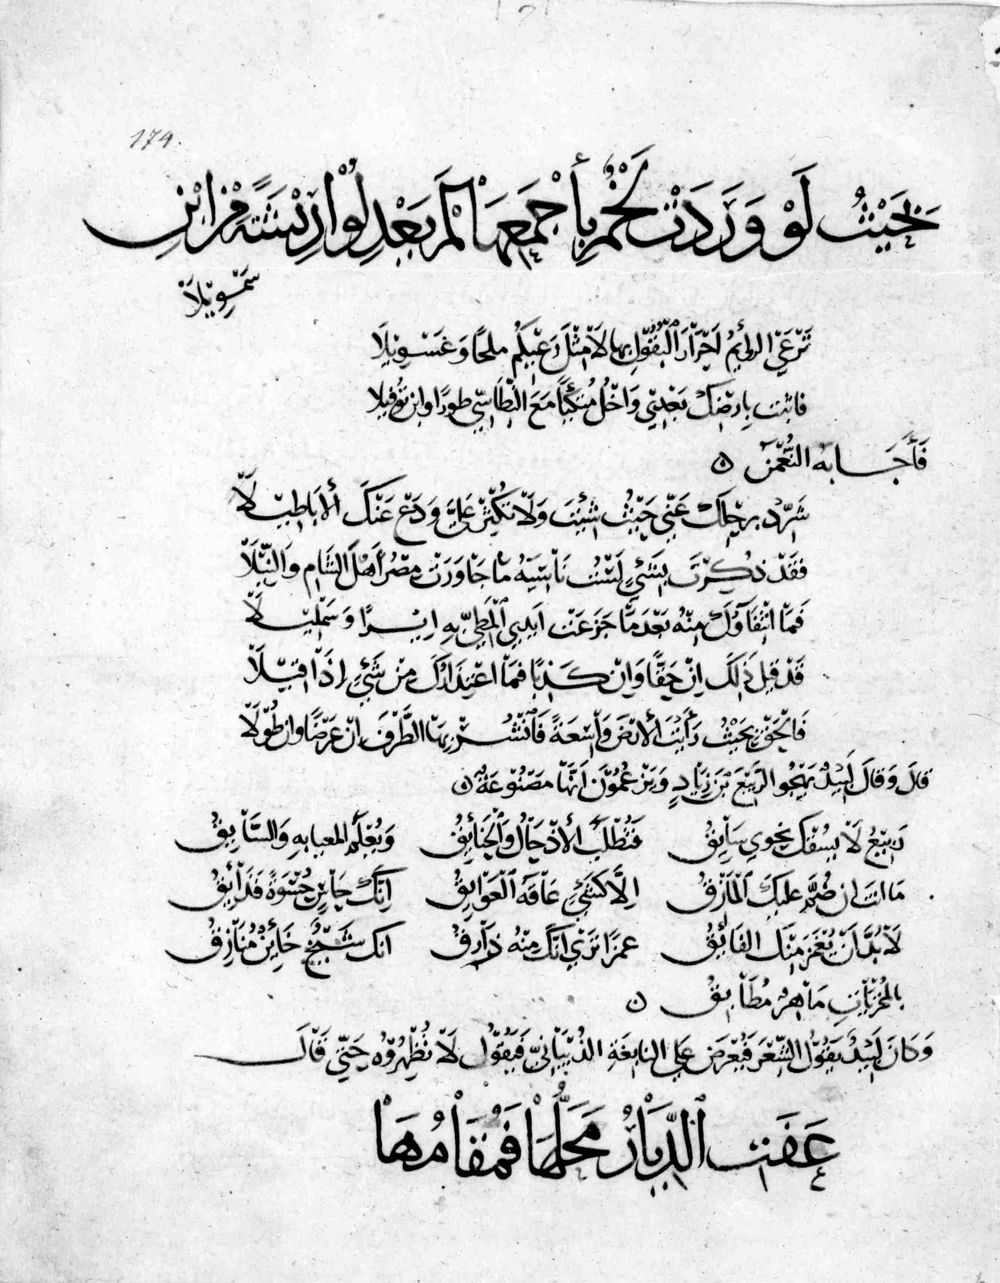 174.
بحيث لو وردت لخم بأجمعها لم يعدلوا ريشة من ابن
سمويلا
ترعى الروائم احرار البقول بها لا مثل رعيكم ملحا وغسويلا
فاثبت بارضك بعدي واخل متكئا مع النطاسي طورا وابن توفيلا
فأجابه النعمن ه
شرد برحلك عني حيث شئت ولا تكثر علي ودع عنك ألاباطيلا
فقد ذكرت بشيء لست ناسيه ما جاورت مصر أهل الشام والنيلا
فما انتفاؤك منه بعد ما جزعت ايدي المطي به ابرا وسمليلا
قد قيل ذلك ان حقا وان كذبا فما اعتذارك من شيء اذا قيلا
فالحق بحيث رأيت ألارض واسعة فانشر بها الطرف ان عرضا وان طولا
قال وقال لبيد يهجو الربيع بن زياد ويزعمون انها مصنوعة ه
ربيع لا يسقك نحوي سايق فتطلب ألاذحال والحنائق ويعلم المعيا به والسابق
ما انت ان ضم عليك المازق الا كشيء عاقه العوايق انك حاس حسوة فذائق
لا بد ان يغمز منك الفائق غمزا ترى انك منه ذارق انك شيخ خائن منافق
بالمخزيات ماهر مطابق ه
وكان لبيد يقول الشعر فيعرض على النابغة الذبياني فيقول لا تظهروه حتى قال
عفت الديار محلها فمقامها